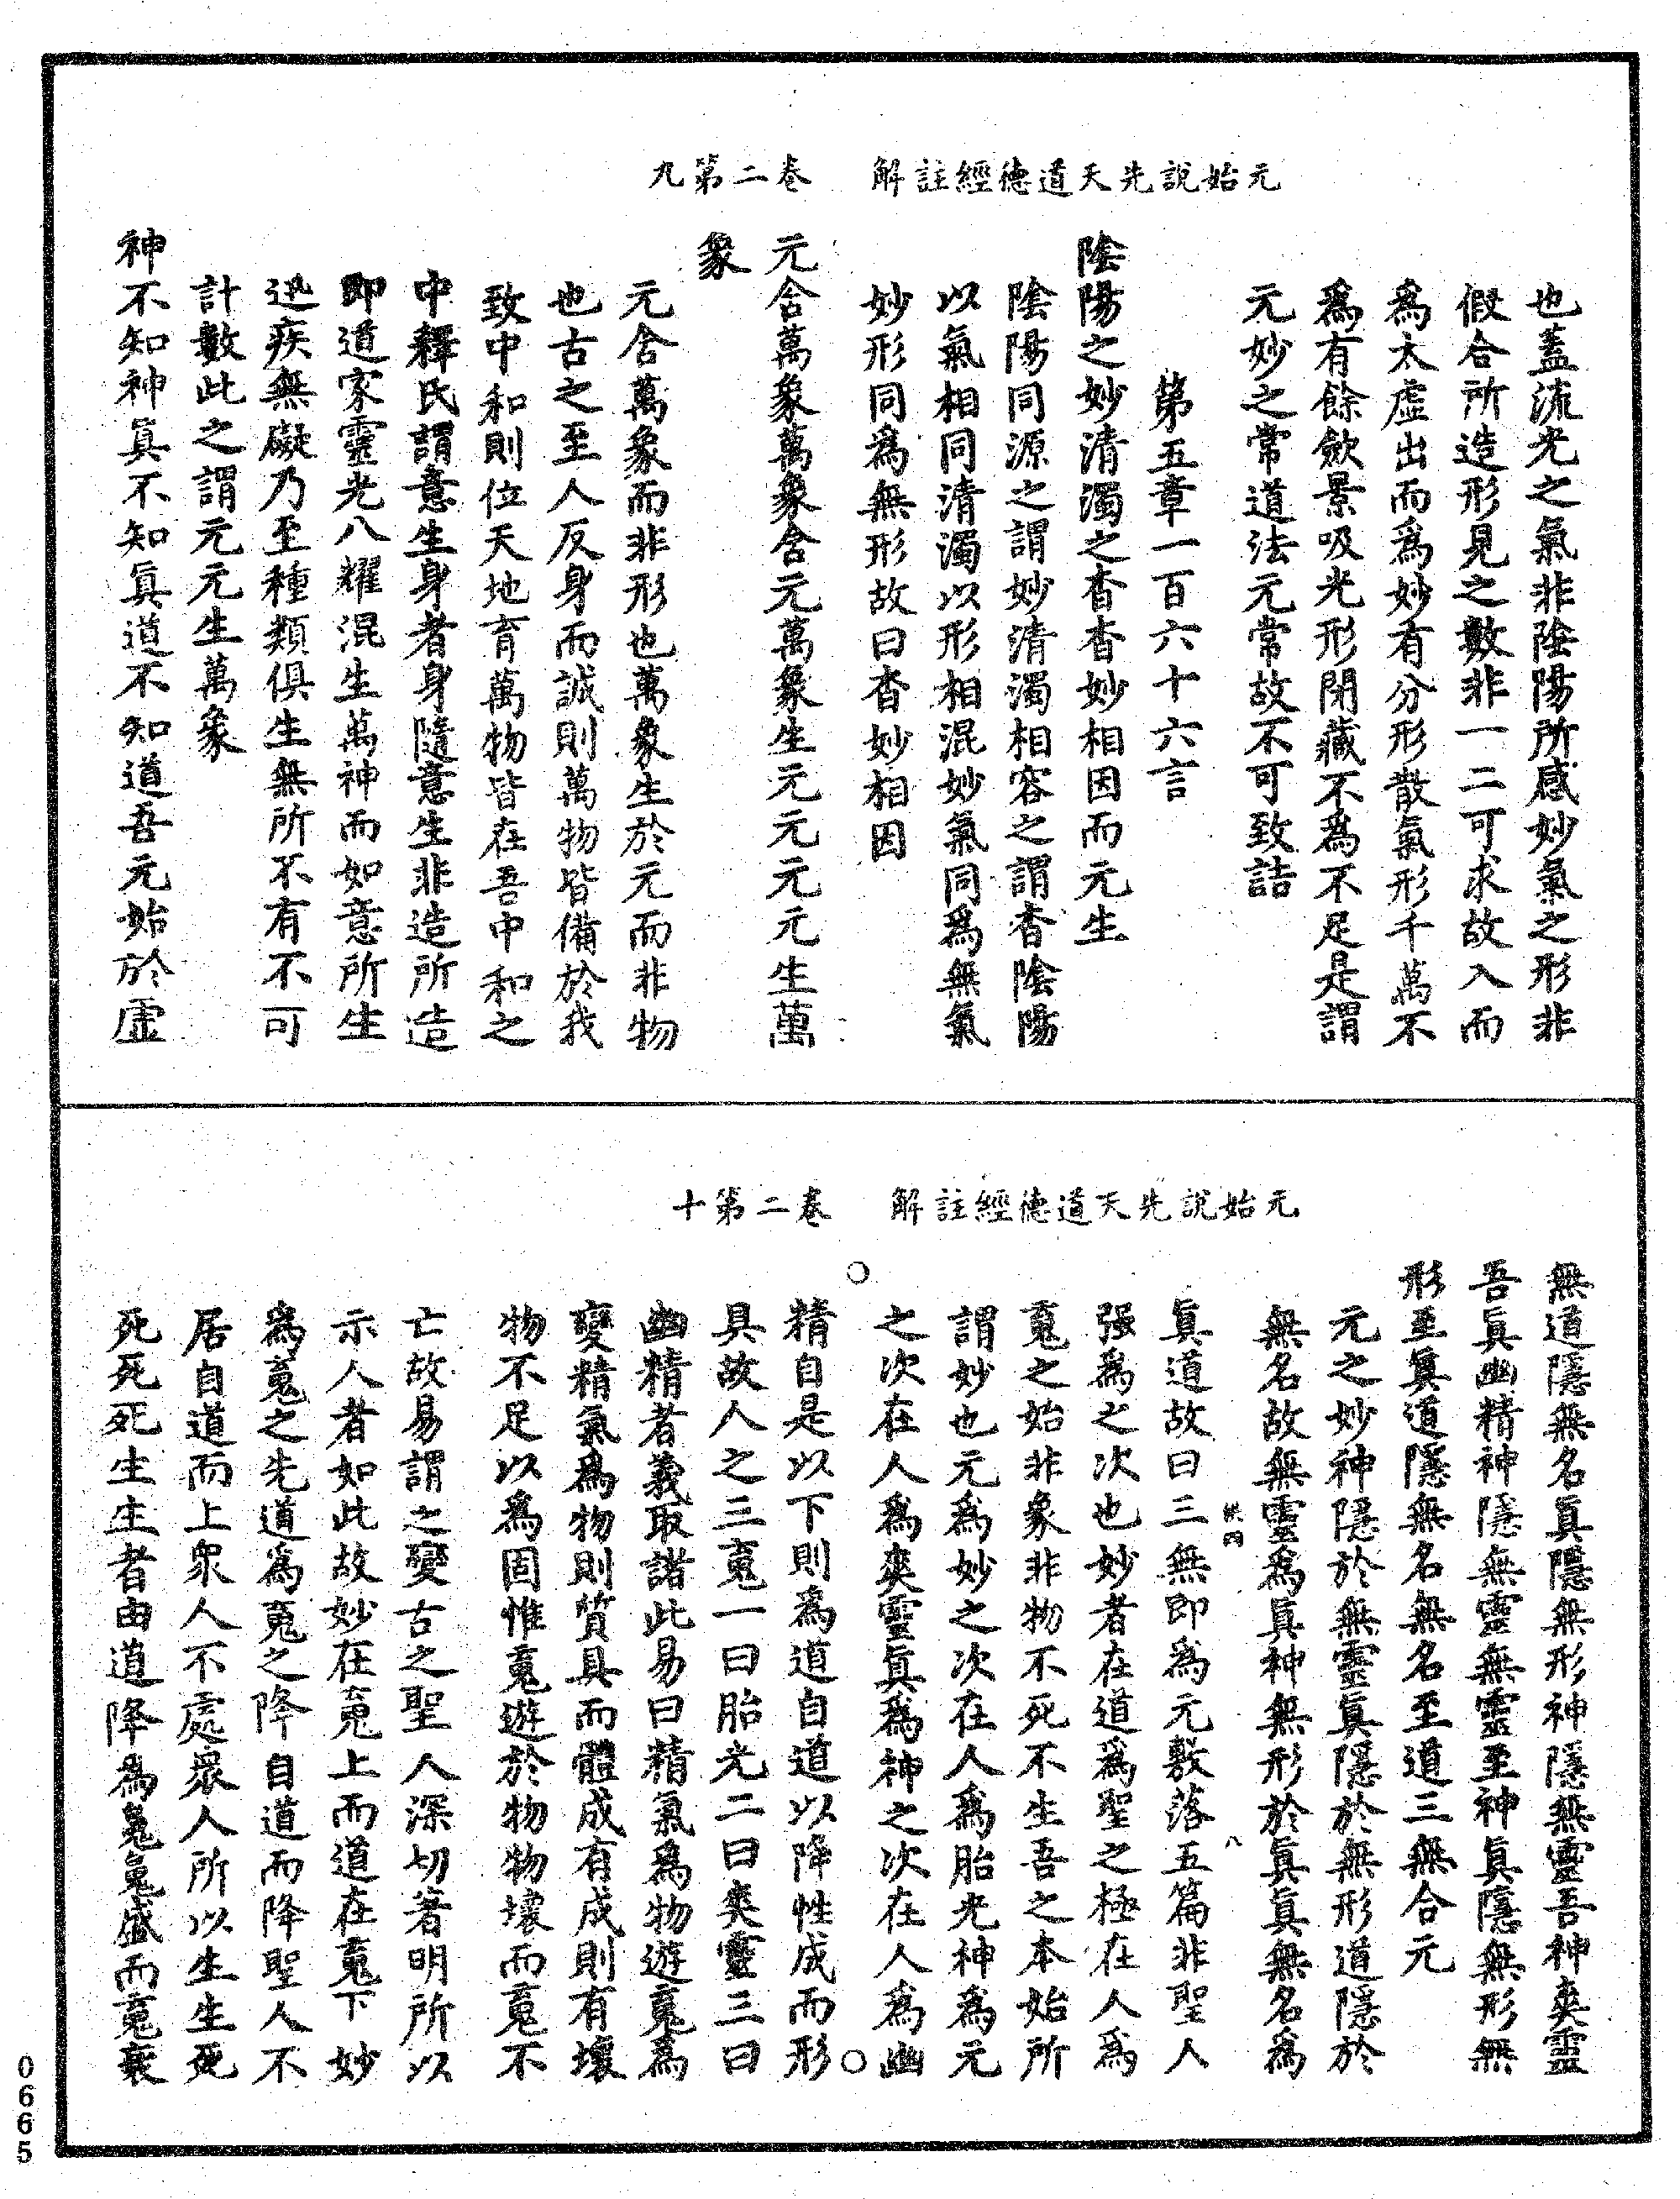 元始說先天道德經註解　卷二第九
也蓋流光之氣非陰陽所感妙氣之形非
假合所造形見之數非一二可求故入而
爲太虛出而爲妙有分形散氣形千萬不
爲有餘斂景吸光形閉藏不爲不足是謂
元妙之常道法元常故不可致詰
第五章一百六十六言
陰陽之妙清濁之杳杳妙相因而元生
陰陽同源之謂妙清濁相容之謂杳陰陽
以氣相同清濁以形相混妙氣同爲無氣
妙形同爲無形故曰杳妙相因
元含萬象萬象含元萬象生元元元元生萬
象
元含萬象而非形也萬象生於元而非物
也古之至人反身而誠則萬物皆備於我
致中和則位天地育萬物皆在吾中和之
中釋氏謂意生身者身隨意生非造所造
即道家靈光八耀混生萬神而如意所生
迅疾無礙乃至種類俱生無所不有不可
計數此之謂元元生萬象
神不知神真不知真道不知道吾元始於虛
元始說先天道德經註解　卷二第十
無道隱無名真隱無形神隱無靈吾神爽靈
吾真幽精神隱無靈無靈至神真隱無形無
形至真道隱無名無名至道三無合元
元之妙神隱於無靈真隱於無形道隱於
無名故無靈爲真神無形於真真無名爲
真道故曰三無即爲元敷落五篇非聖人
强爲之次也妙者在道爲聖之極在人爲
䰟之始非象非物不死不生吾之本始所
謂妙也元爲妙之次在人爲胎光神爲元
之次在人爲爽靈真爲神之次在人爲幽
精自是以下則爲道自道以降性成而形
具故人之三䰟一曰胎光二曰爽靈三曰
幽精者義取諸此易曰精氣爲物遊䰟爲
變精氣爲物則質具而體成有成則有壞
物不足以爲固惟䰟遊於物物壞而䰟不
亡故易謂之變古之聖人深切著明所以
示人者如此故妙在䰟上而道在䰟下妙
爲䰟之先道爲䰟之降自道而降聖人不
居自道而上眾人不處眾人所以生生死
死死死生生者由道降爲䰟䰟盛而䰟衰
八
0665